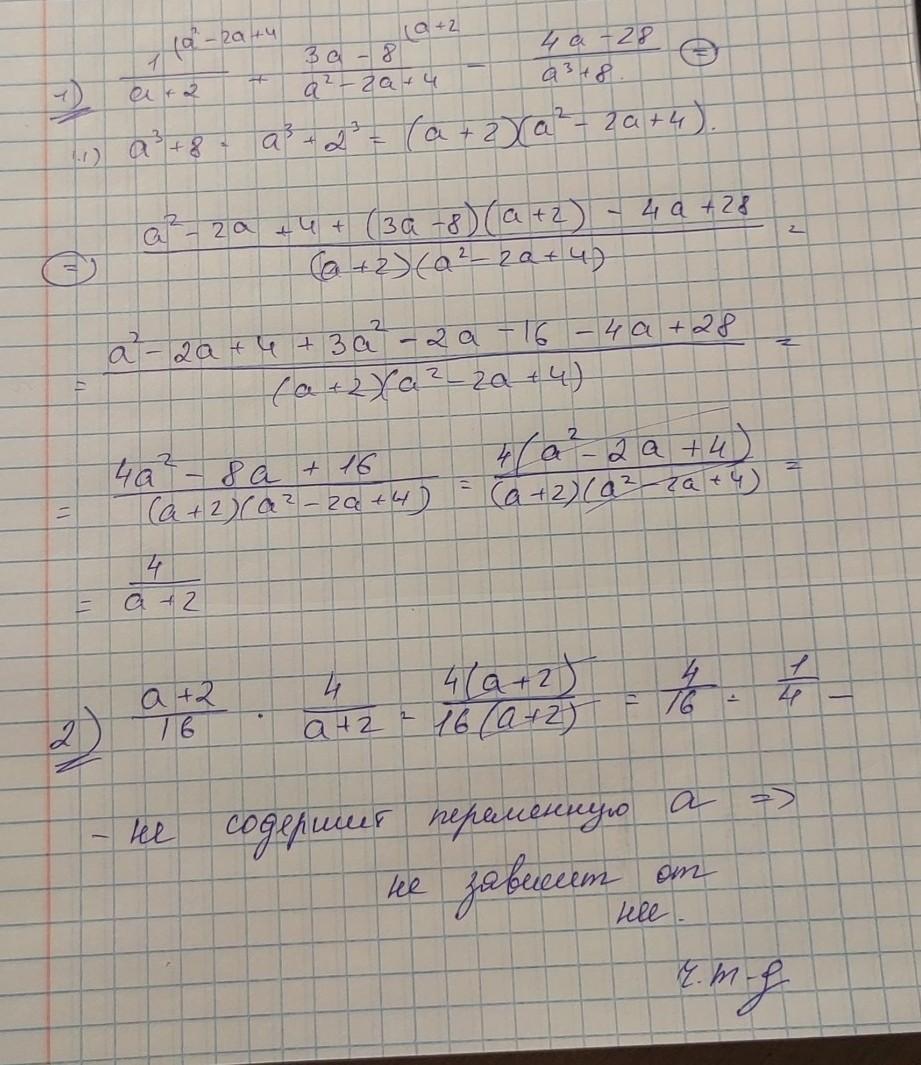 1) 1/(a+2) (a²-2a+4 + (3a-8)/(a²-2a+4) (a+2 - (4a-28)/(a³+8). =
1.1) a³+8 = a³+2³ = (a+2)(a²-2a+4).
=) (a²-2a+4+(3a-8)(a+2)-4a+28)/((a+2)(a²-2a+4)) =
= (a²-2a+4+3a²-2a-16-4a+28)/((a+2)(a²-2a+4)) =
= (4a²-8a+16)/((a+2)(a²-2a+4)) = 4(a²-2a+4)/((a+2)(a²-2a+4)) =
= 4/(a+2)
2) (a+2)/16 · 4/(a+2) = 4(a+2)/(16(a+2)) = 4/16 = 1/4 –
– не содержит переменную a =>
не зависит от
нее.
ч.т-д